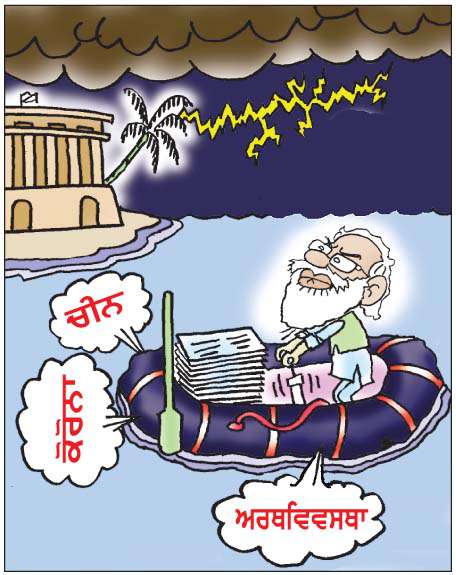 ਚੀਨ
ਕੋਰੋਨਾ
ਅਰਥਵਿਵਸਥਾ